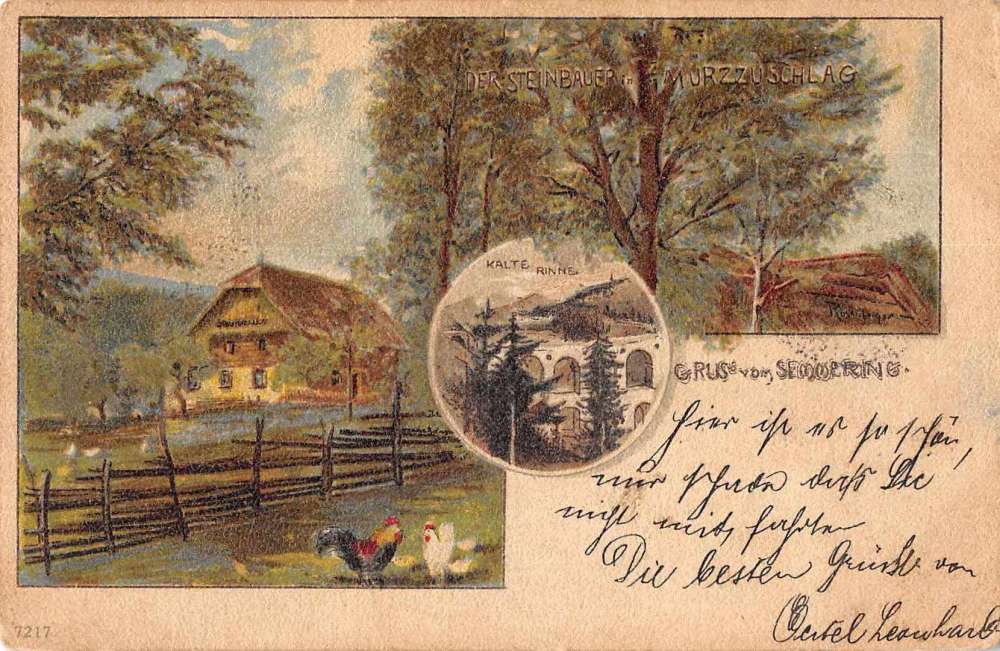 DER STEINBAUER in MÜRZZUSCHLAG
KALTE RINNE.
GRUSS vom SEMMERING.
Hier ist es so schön,
nur schade daß Sie
nicht mit fahrten
Die besten Grüße von
Leonhard
7217